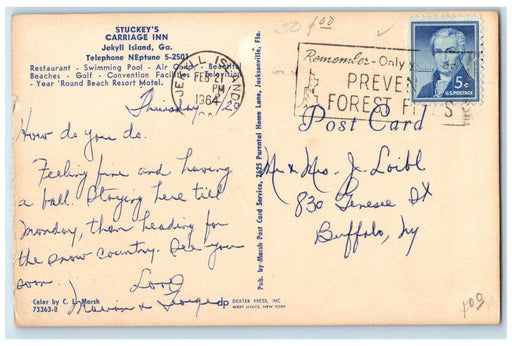 STUCKEY'S
CARRIAGE INN
Jekyll Island, Ga.
Telephone NEptune 5-2501
Restaurant - Swimming Pool - Air Cond. - Beautiful
Beaches - Golf - Convention Facilities - Television
- Year 'Round Beach Resort Motel.
Thursday
How do you do.
Feeling fine and having
a ball. Staying here till
Monday, then heading for
the snow country. See you
soon.
Love
Marion & George
Color by C. L. Marsh
73363-B
Pub. by Marsh Post Card Service, 3675 Parental Home Lane, Jacksonville, Fla.
dp DEXTER PRESS, INC.
WEST NYACK, NEW YORK
JEKYLL ISLAND
FEB 21
PM
1964
Remember - Only you
PREVENT
FOREST FIRES
5¢
U.S. POSTAGE
Post Card
Mr & Mrs. J. Loibl
830 Genesee St
Buffalo, Ny
100